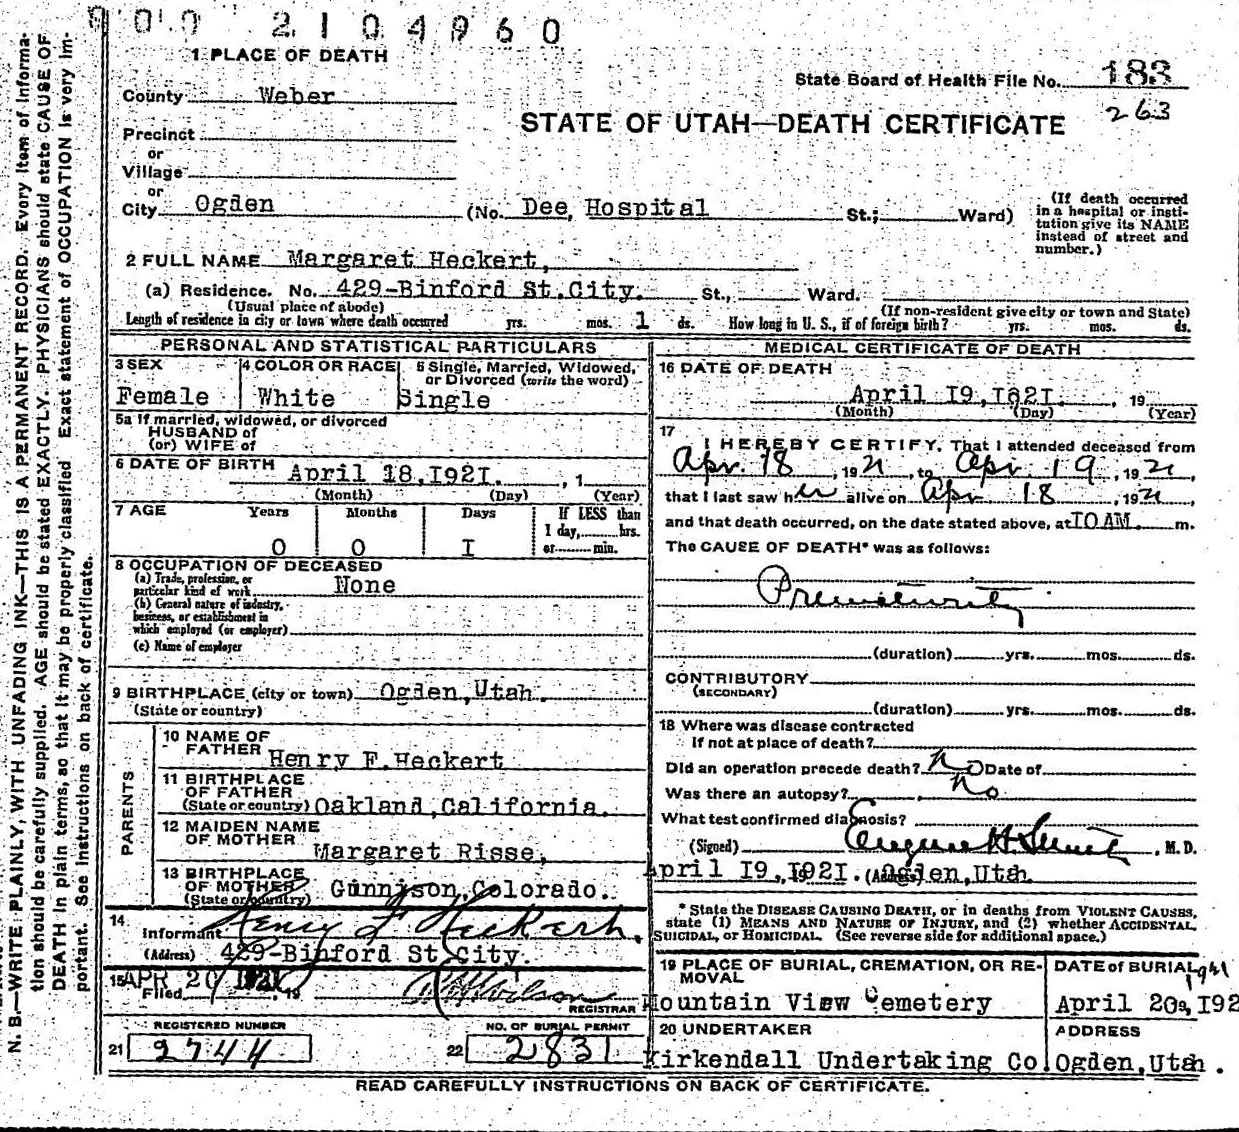 900 2104960
1 PLACE OF DEATH
State Board of Health File No. 183
263
County Weber
STATE OF UTAH—DEATH CERTIFICATE
Precinct
or
Village
or
City Ogden (No. Dee, Hospital St.; Ward)
(If death occurred in a hospital or insti-
tution give its NAME
instead of street and
number.)
2 FULL NAME Margaret Heckert,
(a) Residence. No. 429-Binford St. City. St., Ward.
(Usual place of abode) (If non-resident give city or town and State)
Length of residence in city or town where death occurred yrs. mos. 1 ds. How long in U. S., if of foreign birth? yrs. mos. ds.
PERSONAL AND STATISTICAL PARTICULARS
3 SEX
Female
4 COLOR OR RACE
White
5 Single, Married, Widowed,
or Divorced (write the word)
Single
5a If married, widowed, or divorced
HUSBAND of
(or) WIFE of
6 DATE OF BIRTH April 18, I92I. , 1
(Month) (Day) (Year)
7 AGE Years Months Days If LESS than
1 day, hrs.
or min.
0 0 I
8 OCCUPATION OF DECEASED
(a) Trade, profession, or
particular kind of work None
(b) General nature of industry,
business, or establishment in
which employed (or employer)
(c) Name of employer
9 BIRTHPLACE (city or town) Ogden, Utah.
(State or country)
PARENTS
10 NAME OF
FATHER Henry F. Heckert
11 BIRTHPLACE
OF FATHER
(State or country) Oakland, California.
12 MAIDEN NAME
OF MOTHER Margaret Risse,
13 BIRTHPLACE
OF MOTHER
(State or country) Gunnison, Colorado.
14
Informant Henry F Heckert.
(Address) 429-Binford St. City.
15 Filed APR 20 1921, 19 Wilson
REGISTRAR
REGISTERED NUMBER NO. OF BURIAL PERMIT
21 2744 22 2831
MEDICAL CERTIFICATE OF DEATH
16 DATE OF DEATH
April I9, I92I. , 19
(Month) (Day) (Year)
17
I HEREBY CERTIFY, That I attended deceased from
Apr. 18, 1921, to Apr 19, 1921,
that I last saw her alive on Apr 18, 1921,
and that death occurred, on the date stated above, at I0 AM. m.
The CAUSE OF DEATH* was as follows:
Prematurity
(duration) yrs. mos. ds.
CONTRIBUTORY
(SECONDARY)
(duration) yrs. mos. ds.
18 Where was disease contracted
If not at place of death?
Did an operation precede death? No Date of
Was there an autopsy? No
What test confirmed diagnosis?
(Signed) , M. D.
April I9, I92I. (Address) Ogden, Utah.
* State the DISEASE CAUSING DEATH, or in deaths from VIOLENT CAUSES,
state (1) MEANS AND NATURE OF INJURY, and (2) whether ACCIDENTAL,
SUICIDAL, or HOMICIDAL. (See reverse side for additional space.)
19 PLACE OF BURIAL, CREMATION, OR RE-
MOVAL
Mountain View Cemetery
DATE of BURIAL
April 20, I92
20 UNDERTAKER
Kirkendall Undertaking Co.
ADDRESS
Ogden, Utah.
READ CAREFULLY INSTRUCTIONS ON BACK OF CERTIFICATE.
N. B.—WRITE PLAINLY, WITH UNFADING INK—THIS IS A PERMANENT RECORD. Every item of informa-
tion should be carefully supplied. AGE should be stated EXACTLY. PHYSICIANS should state CAUSE OF
DEATH in plain terms, so that it may be properly classified. Exact statement of OCCUPATION is very im-
portant. See instructions on back of certificate.